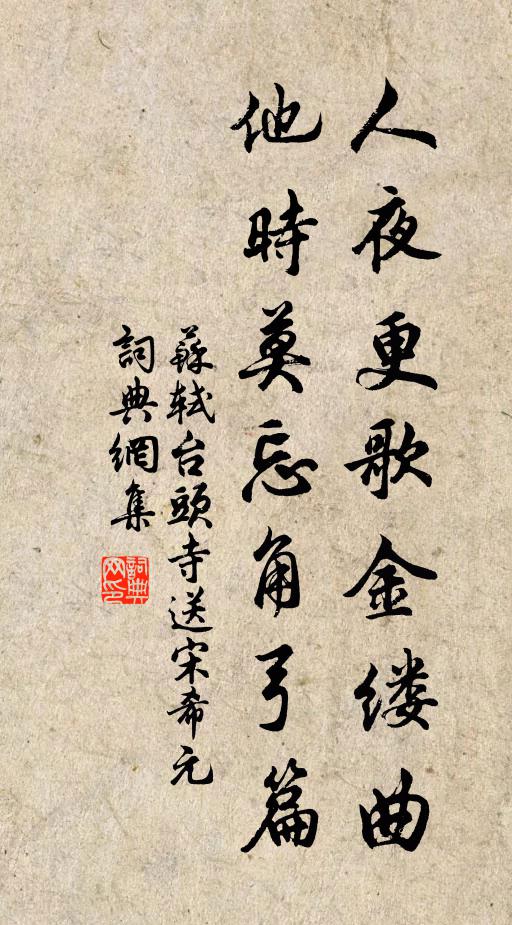 人夜更歌金缕曲
他時莫忘角弓篇
蘇軾台頭寺送宋希元
詞典網集
詞典网印